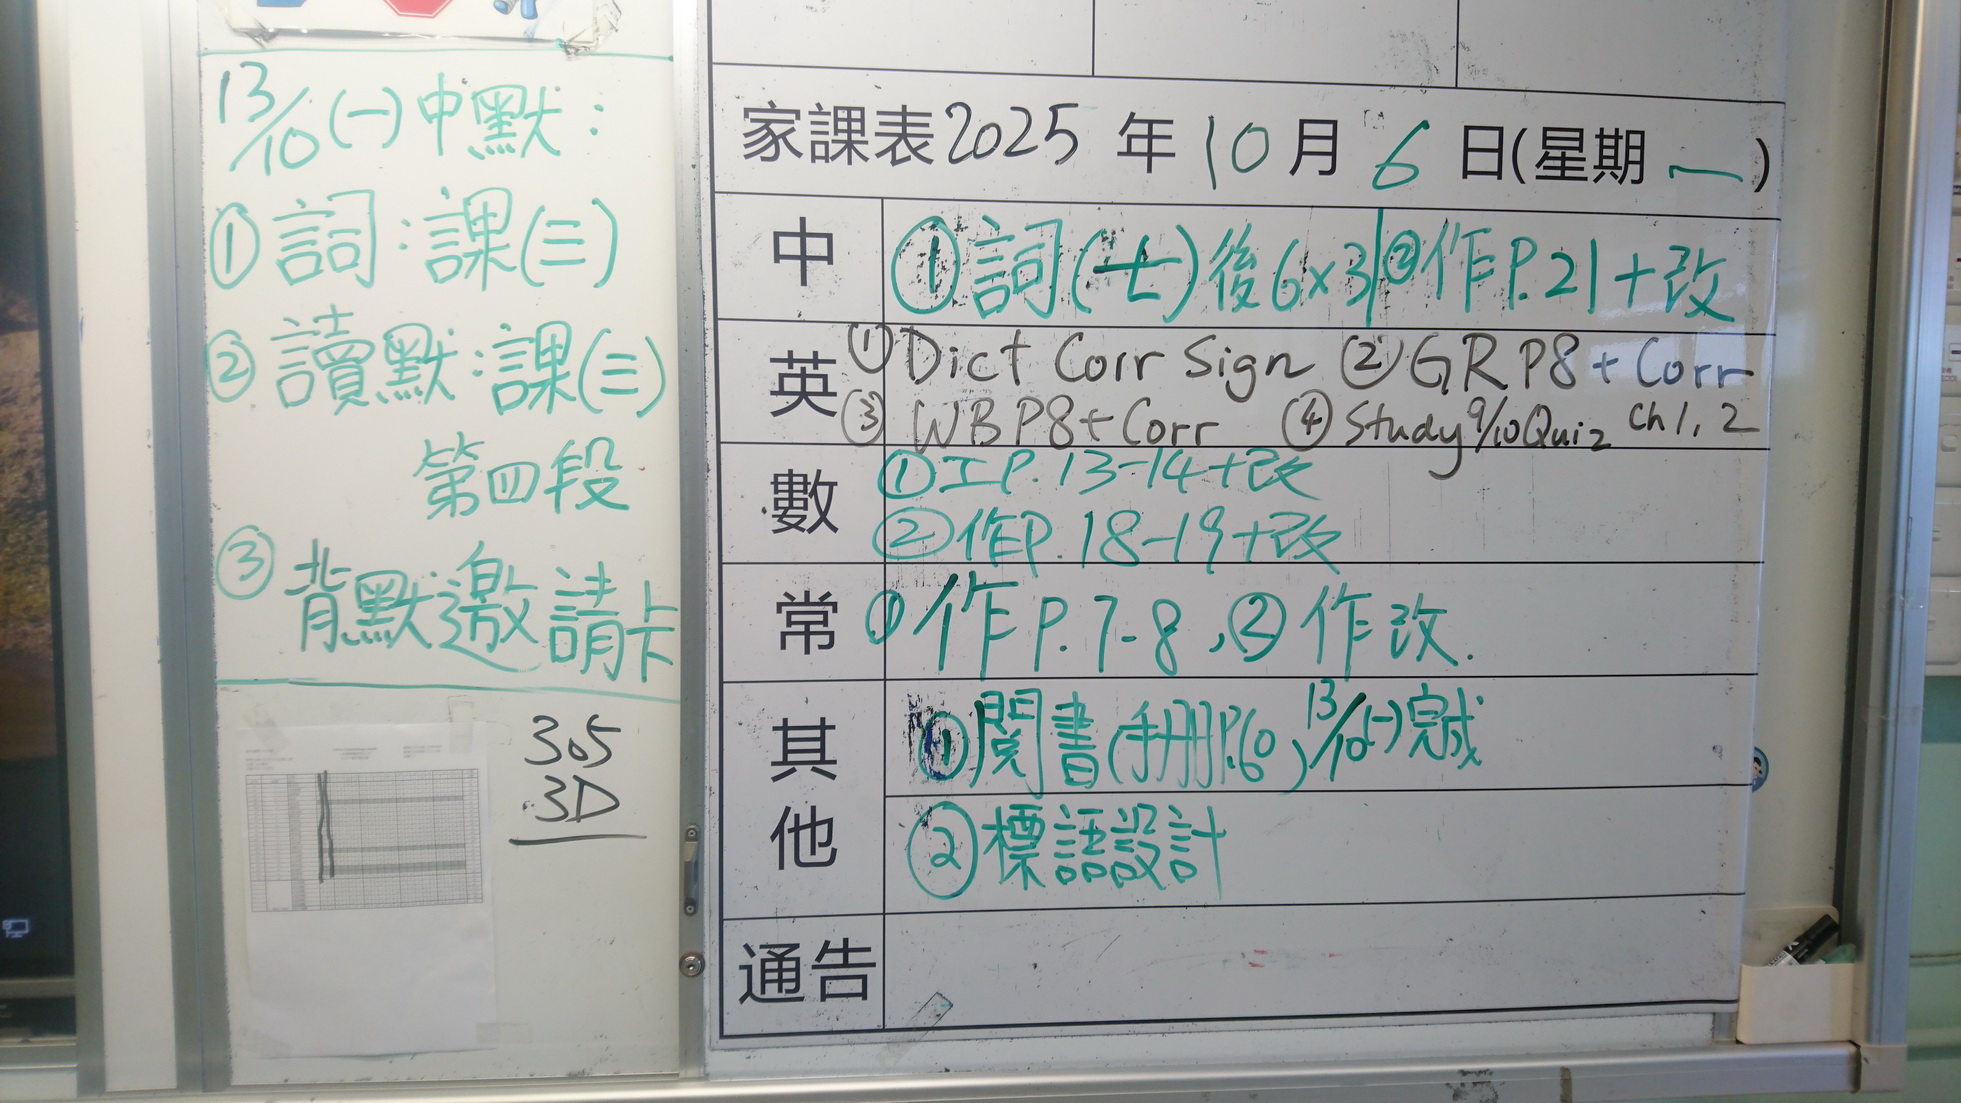 13/10(一)中默:
①詞:課(三)
②讀默:課(三)
第四段
③背默邀請卡
305
3D
家課表2025年10月6日(星期一)
中 ①詞(七)後6x3|②作P.21+改
英 ①Dict Corr Sign ②GR P8+Corr
③WB P8+Corr ④Study 9/10 Quiz Ch 1, 2
數 ①工P.13-14+改
②作P.18-19+改
常 ①作P.7-8,②作改.
其他 ①閱書(手冊P.60)13/10(一)完成
②標語設計
通告